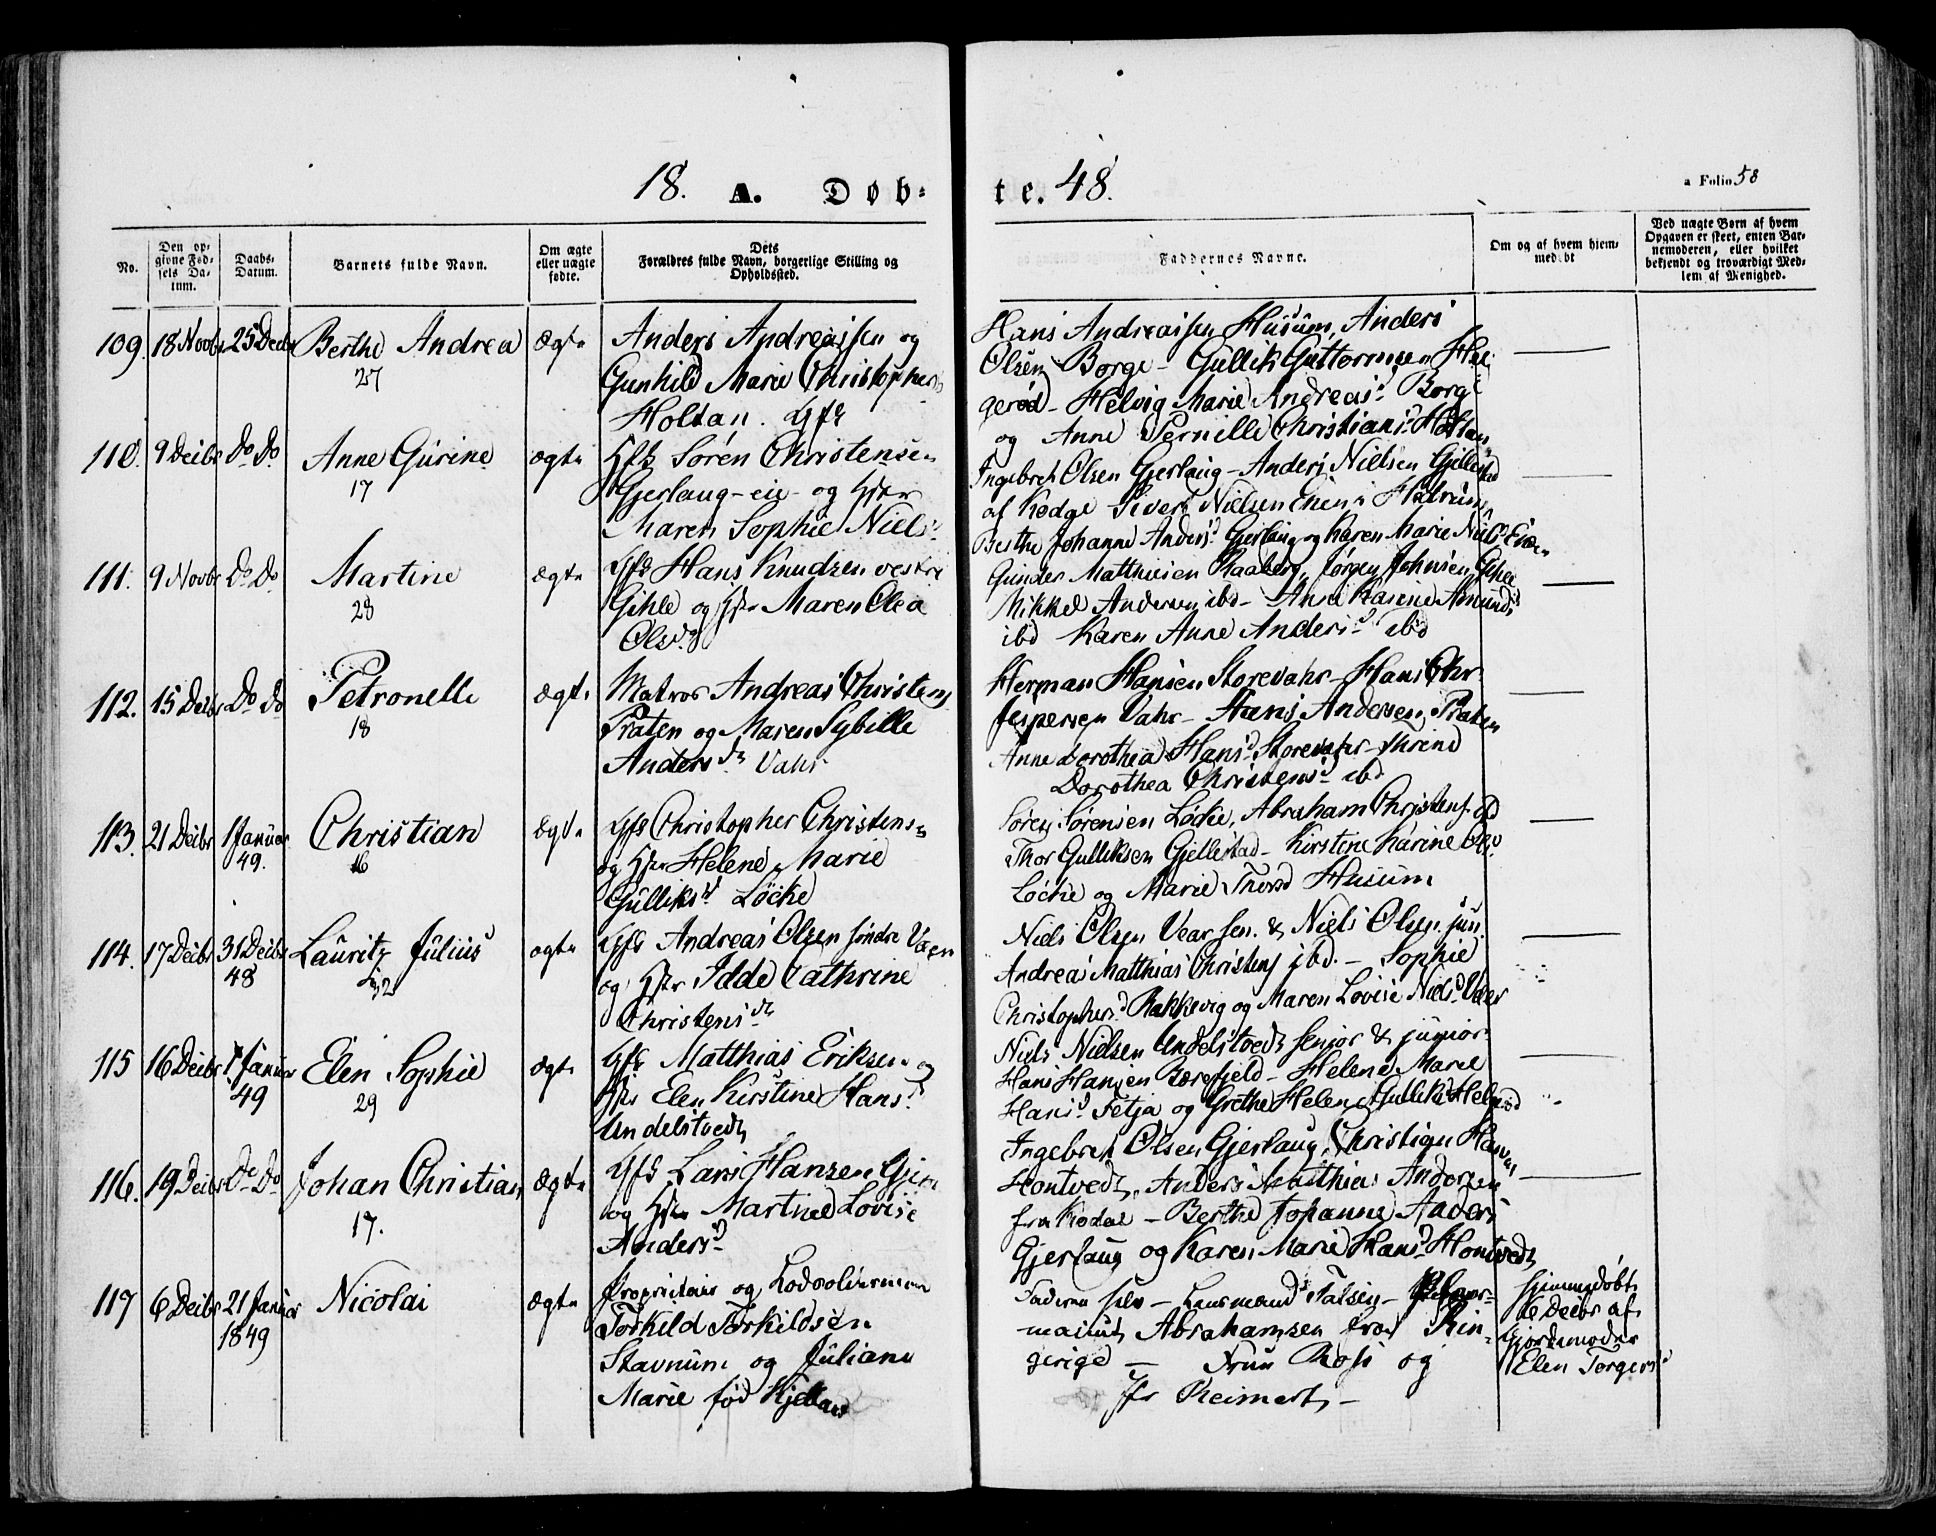 18. A. Døb-
te. 48.
a Folio 58
No.
Den op-
givne Fød-
sels Da-
tum.
Daabs-
Datum.
Barnets fulde Navn.
Om ægte
eller uægte
fødte.
Dets
Forældres fulde Navn, borgerlige Stilling og
Opholdssted.
Faddernes Navne.
Om og af hvem hjem-
medøbt
Ved uægte Børn af hvem
Opgaven er skeet, enten Bar-
nemoderen, eller hvilket
bekjendt og troværdigt Med-
lem af Menighed.
109 18 Novbr 25 Decbr Berthe Andrea ægte
27
Anders Andreassen og
Gunhild Marie Christophers
Holtan. Gfk
Hans Andreassen Husum, Anders
Olsen Borge - Gullik Guttormsen Hel-
gerød - Helvig Marie Andreasd Borge
og Anne Pernille Christiansd Holtan
110. 9 Decbr Do Do Anne Gurine ægte
17
Gfk Søren Christensen
Gjerlaug - eie - og Hstr
Maren Sophie Nielsd
Ingebret Olsen Gjerlaug - Anders Nielsen Gjellestad
af Kodge Sivert Nielsen
Berthe Johanne Andersd Gjerlaug og Karen Marie Nielsd
111. 9 Novbr Do Do Martine ægte
28
Gfk Hans Knudsen vestre
Gihle og Hstr Maren Olea
Olsdr
Gunder Matthisen Raaberg, Jørgen Johnsen Gihle
Mikkel Andersen ibd - Anne Karine Amundsd
ibd Karen Anne Andersd ibd
112. 15 Decbr Do Do Petronelle ægte
18
Matros Andreas Christens
Præten og Maren Sybille
Andersdr Vahr
Herman Hansen Storevahr - Hans Chr.
Jespersen Vahr - Hans Andersen, Præten
Anne Dorothea Hansd Storevahr - Thrine
Dorothea Christensd ibd
113. 21 Decbr 1 Januar Christian ægte
49. 16
Gfk Christopher Christens-
og Hstr Helene Marie
Gulliksd Løcke
Søren Sørensen Løcke, Abraham Christens. ibd
Thor Gulliksen Gjellestad - Kirstene Karine Olsd
Løcke og Marie Thorsd Husum
114. 17 Decbr 31 Decbr Lauritz Julius ægte
48 32
Gfk Andreas Olsen søndre Veen
og Hstr Idde Cathrine
Christensdr
Niels Olsen Vear sen. & Niels Olsen jun.
Andreas Matthias Christens ibd. - Sophie
Christophersd Rakkevig og Maren Lovise Nielsd Vear
115 16 Decbr 1 Januar Elen Sophie ægte
49 29
Gfk Matthias Eriksen og
Hstr Elen Kirstine Hansd
Undelstvedt
Niels Nielsen Undelstvedt senior & junior
Hans Hansen Bærefjeld - Helene Marie
Hansd Fetja og Grethe Helene Gulliksd Helgerød
116. 19 Decbr Do Do Johan Christian ægte
17.
Gfk Lars Hansen Gjer
og Hstr Martine Lovise
Andersd
Ingebret Olsen Gjerlaug, Christian Hansen
Hontvedt, Anders Matthias Andersen
fra Kodal - Berthe Johanne Anders
Gjerlaug og Karen Marie Hansd Hontvedt
117 6 Decbr 21 Januar Nicolai ægte
1849
Proprietair og Lodsolderman
Torkild Torkildsen
Stavnum og Juliane
Marie fød Kjellan
Faderen selv - Lensmand Falsen -
Abrahamsen fra Rin-
gerige - Fru Ross og
Jfr Reimert -
hjemmedøbt
6 Decbr af
Gjordemoder
Elen Torgersd